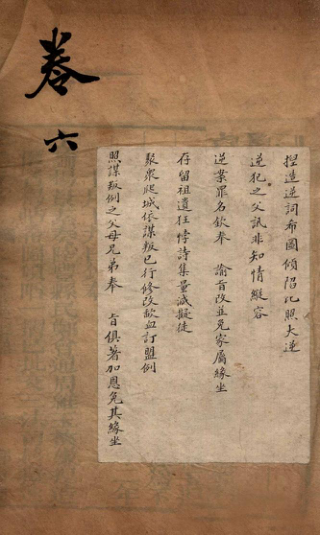 卷六
捏造逆詞希圖傾陷比照大逆
逆犯之父訊非知情縱容
逆案罪名欽奉　諭旨改並免家屬緣坐
存留祖遺狂悖詩集量減擬徒
聚眾爬城依謀叛已行修改歃血訂盟例
照謀叛例之父母兄弟奉　旨俱著加恩免其緣坐